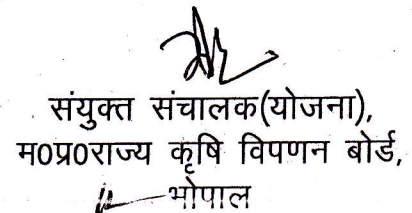 संयुक्त संचालक(योजना),
म0प्र0राज्य कृषि विपणन बोर्ड,
भोपाल